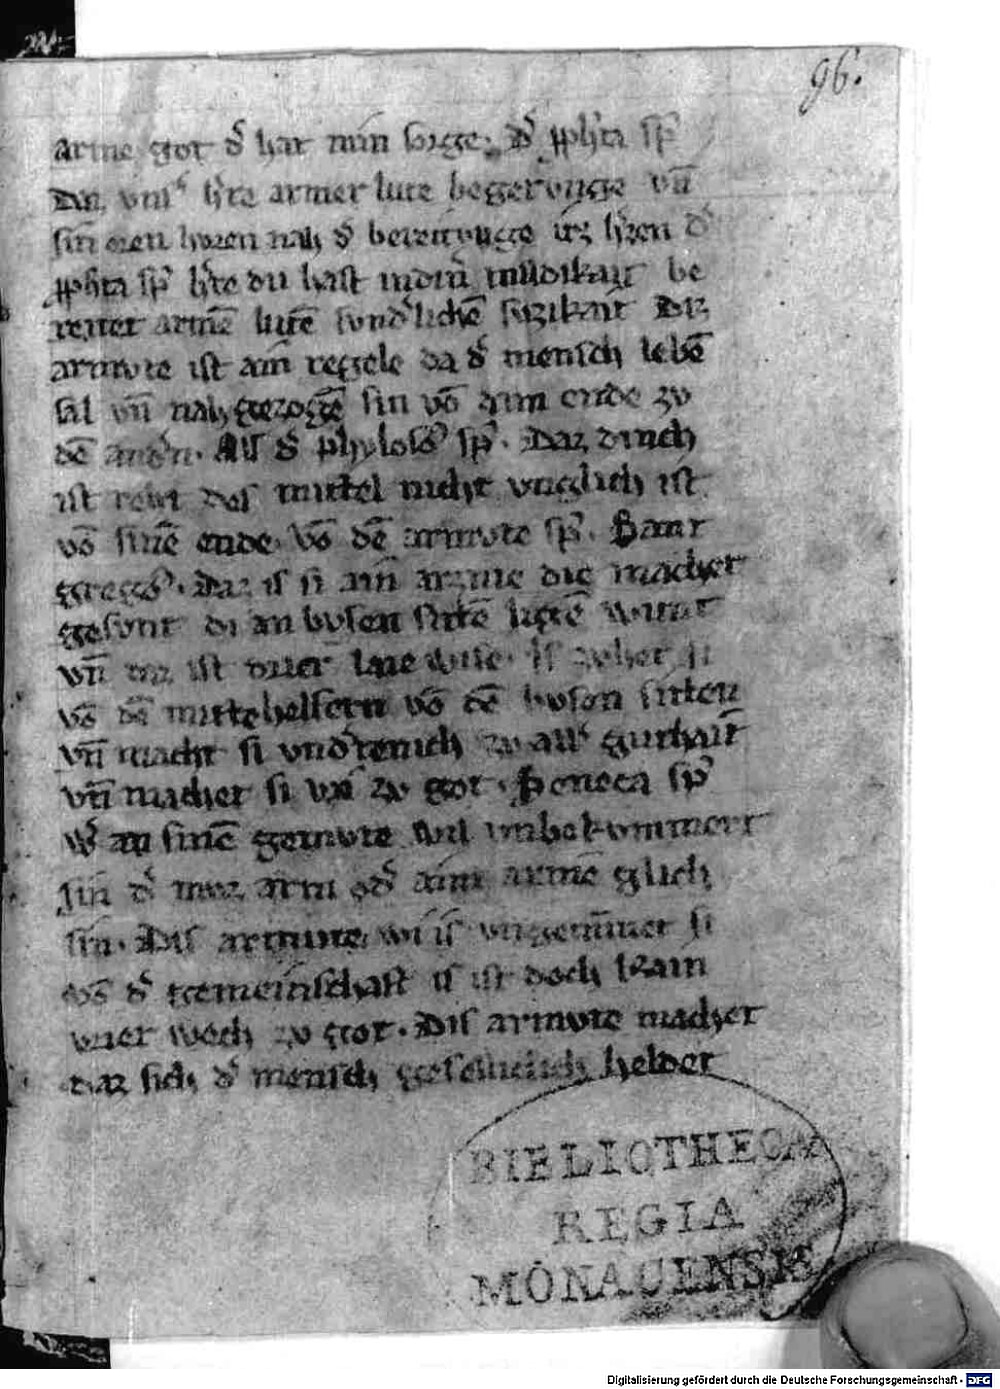 96.
arme got dˢ hat min sorge. Dˢ ꝓphta spˢ
Dar vnsˢ hˢre armer lute begervnge vn̄
sin oren horen nah dˢ bereitvnge irz hˢzen dˢ
ꝓphta spˢ hˢre du hast in din̄ mildikait be
reitet armē lutē sundˢlichē suzikait Diz
armvte ist ain regele da dˢ mensch lebē
sal vn̄ nah gezogē sin vō aim ende zv
dē andˢn. Als dˢ phylosōˢ spˢ. Daz dinch
ist reht des mittel nicht vnglich ist
vō sinē ende. Vō dē armvte spˢ. Sant
gregōˢ. Daz is si ain arznie die machet
gesvnt di an bosen sitē
vn̄ daz ist wise. Is zvhet si
vō dē mittehelfern vō dē bosen sitten
vn̄ macht si vndˢtenich zv allˢ guthait
vn̄ machet si zv got. Seneca spˢ
Wˢ an sinē gemvte wil vnbekvmmert
sin dˢ mvz arm odˢ aim armē glich
sin. Dis armvte wi is si
vō dˢ gemeinschaft is ist doch kain
wech zv got. Dis armvte machet
daz sich dˢ mensch heldet
BIBLIOTHECA
REGIA
MONACENSIS
Digitalisierung gefördert durch die Deutsche Forschungsgemeinschaft - DFG